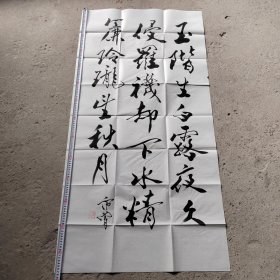 玉階生白露夜久
侵羅襪却下水精
簾玲瓏望秋月